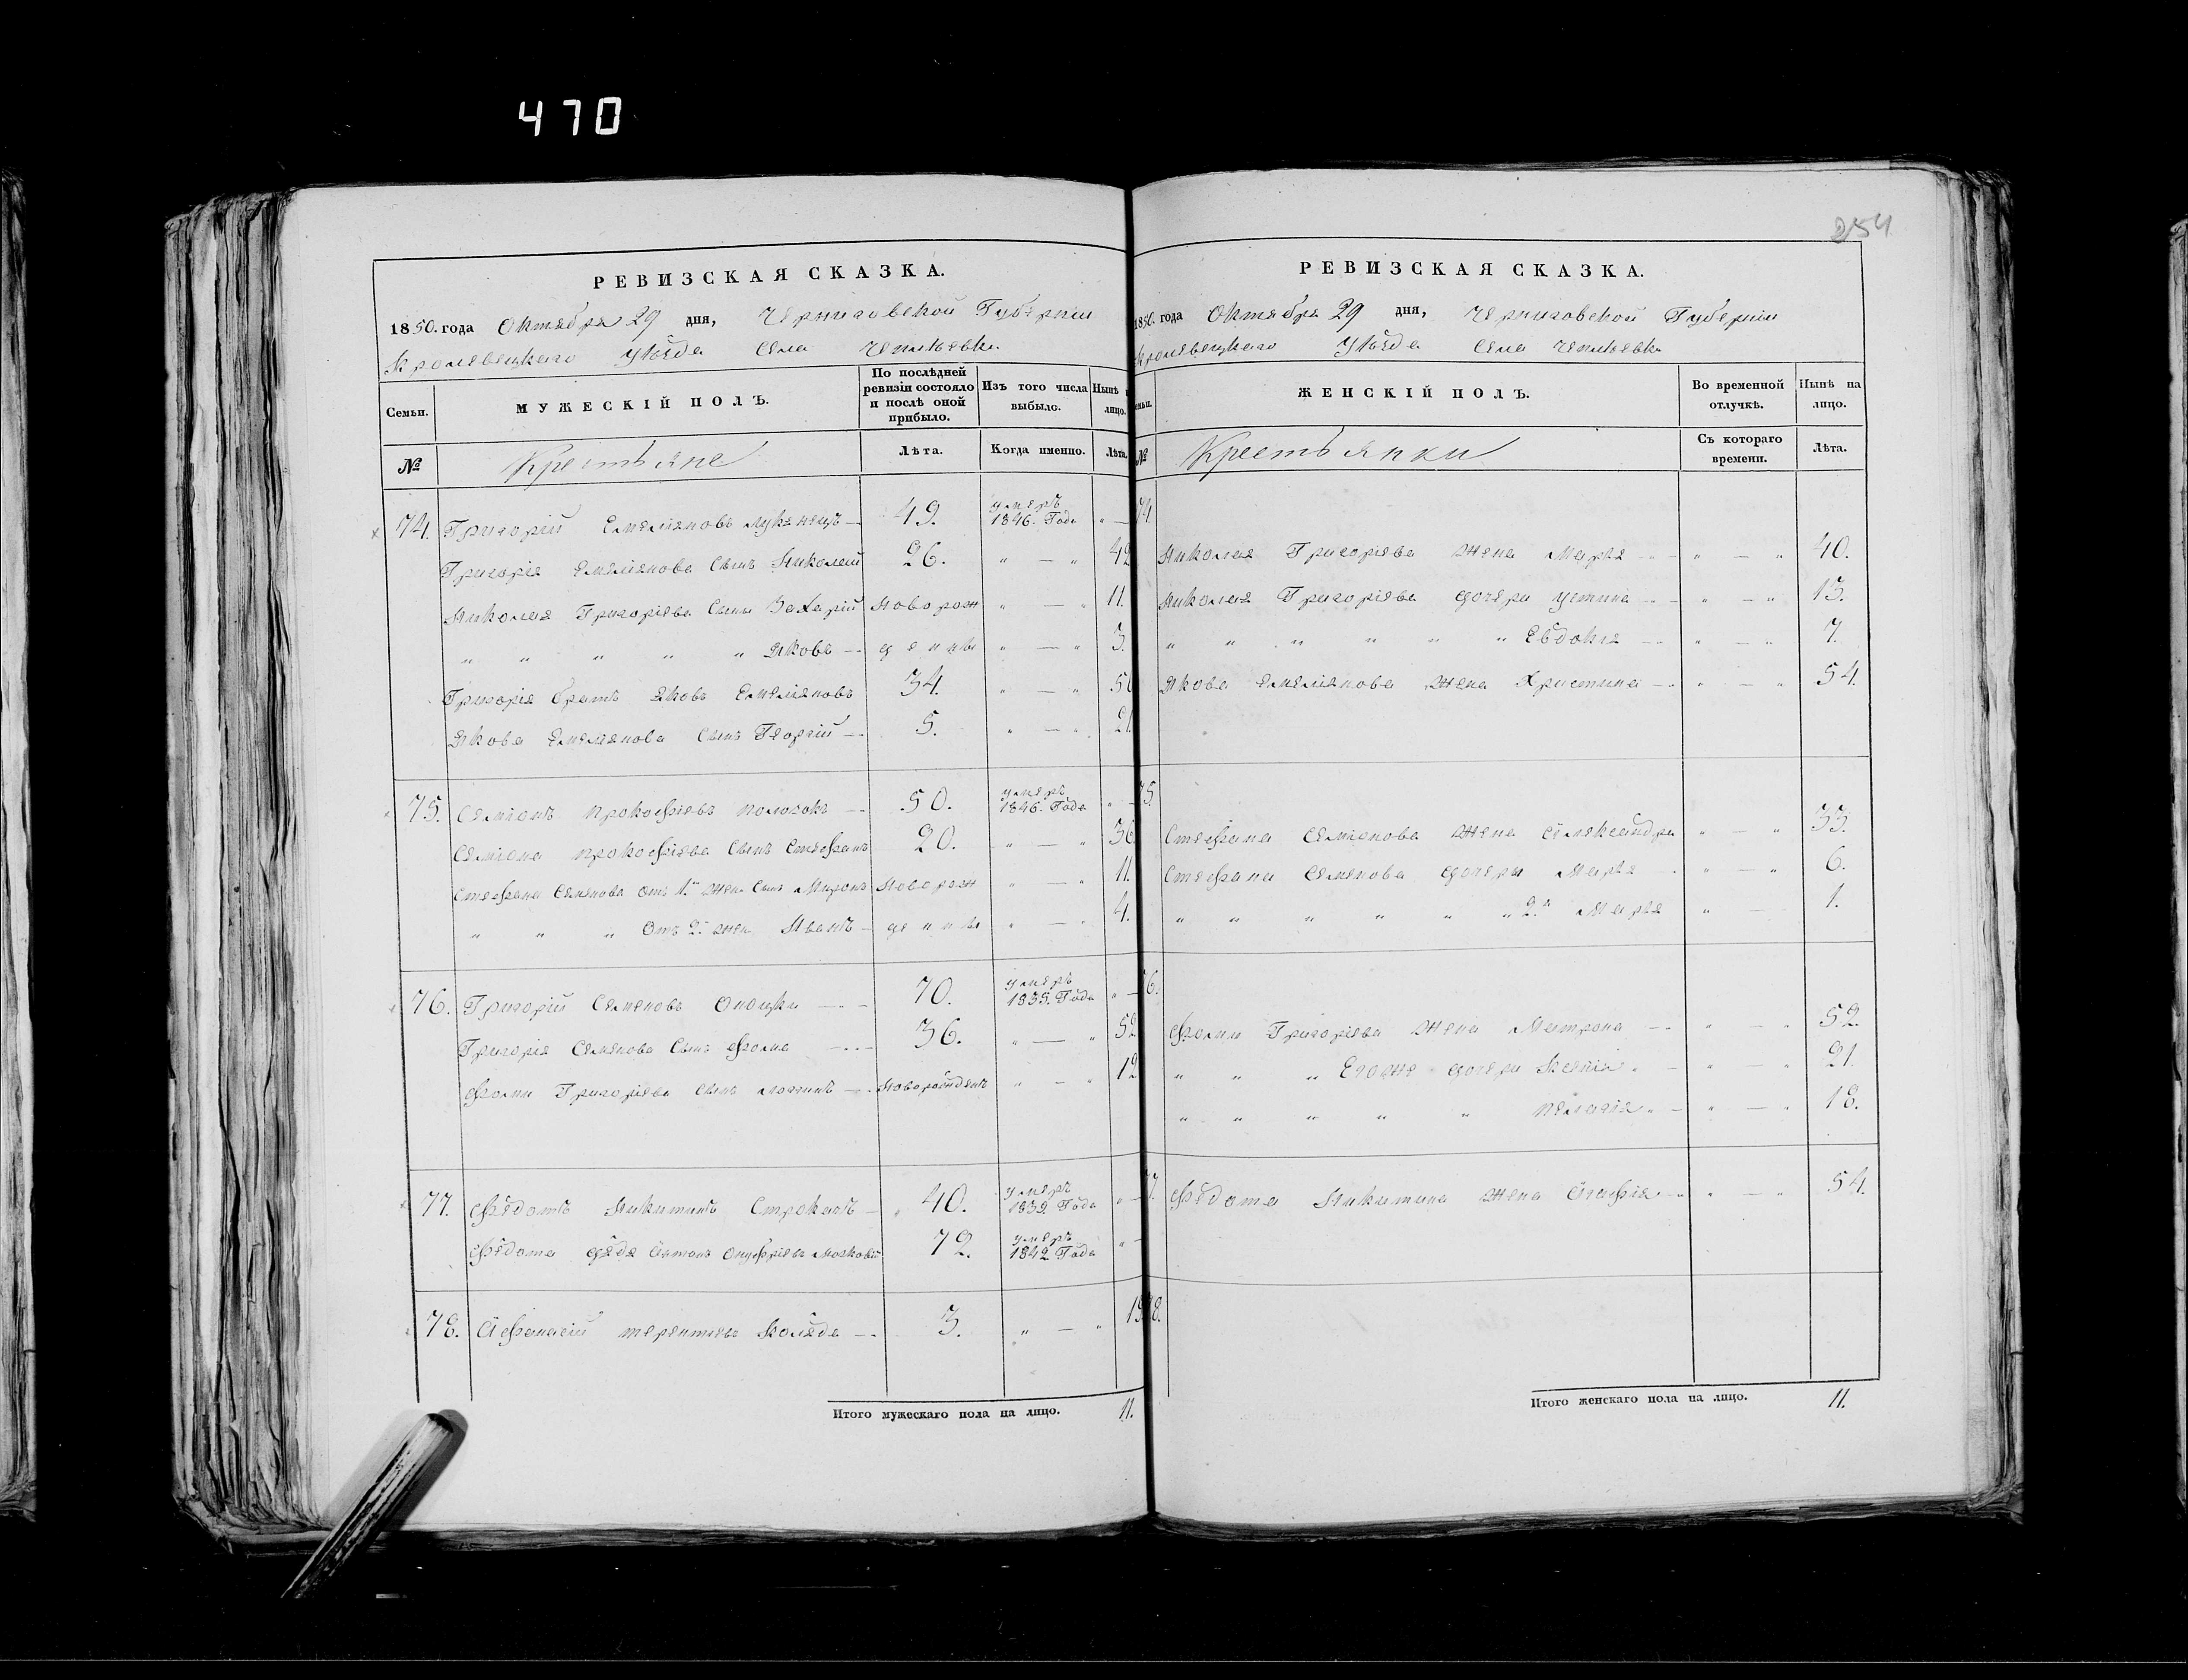 470
254
РЕВИЗСКАЯ СКАЗКА.
1850. года Октября 29 дня, Черниговской Губернии
Кролевецкаго Уѣзда Села Чепліевки
Семьи.
МУЖЕСКІЙ ПОЛЪ.
По послѣдней ревизіи состояло и послѣ оной прибыло.
Изъ того числа выбыло.
Нынѣ на лицо.
№
Крестьяне
Лѣта.
Когда именно.
Лѣта.
74. Григорій Емеліяновъ 49. умеръ 1846. Года
Григорія Емеліянова Сынъ Николай 26. " — " 42
Николая Григоріева Сыны Захарій Новорож " — " 11.
" " " " " Яковъ — денны " — " 3.
Григорія братъ Яковъ Емеліяновъ 34. " — " 50
Якова Емеліянова Сынъ Георгій — 5. " — " 21.
75. Семіонъ Прокофіевъ 50. умеръ 1846. Года
Семіона Прокофіева Сынъ Стефанъ 20. " — " 36
Стефана Семенова Отъ 1й жен. Сынъ Миронъ Новорож " — " 11.
" " " Отъ 2й жен Иванъ — денны " — " 4.
76. Григорій Семеновъ 70. умеръ 1835. Года
Григорія Семенова Сынъ Фома 36. " — " 52
Фомы Григоріева Сынъ Новорожденъ " — " 12
77. Федотъ Никитинъ 40. умеръ 1839. Года
Федота дядя Антонъ Онуфріевъ 72. умеръ 1842 Года
78. Афанасій Терентіевъ Коляда — 3. " — " 19
Итого мужескаго пола на лицо. 11.
РЕВИЗСКАЯ СКАЗКА.
1850. года Октября 29 дня, Черниговской Губерніи
Кролевецкаго Уѣзда Села Чепліевки
Семьи.
ЖЕНСКІЙ ПОЛЪ.
Во временной отлучкѣ.
Нынѣ на лицо.
№
Крестьянки
Съ котораго времени.
Лѣта.
74.
Николая Григоріева жена Марья — " — " 40.
Николая Григоріева дочери Устина — " — " 13.
" " " " " " Евдокія — " — " 7.
Якова Емеліянова жена Христина — " — " 54.
75.
Стефана Семіонова жена Александра " — " 33.
Стефана Семенова дочери Марья " — " 6.
" " " " " " 2я Марья " — 1.
76.
Фомы Григоріева жена Матрона — " — " 52.
" " " Егоже дочери Ксенія " — " 21.
" " " " " Пелагія " — " — " 18.
77. Федота Никитина жена Агафія — " — " 54.
78.
Итого женскаго пола на лицо. 11.